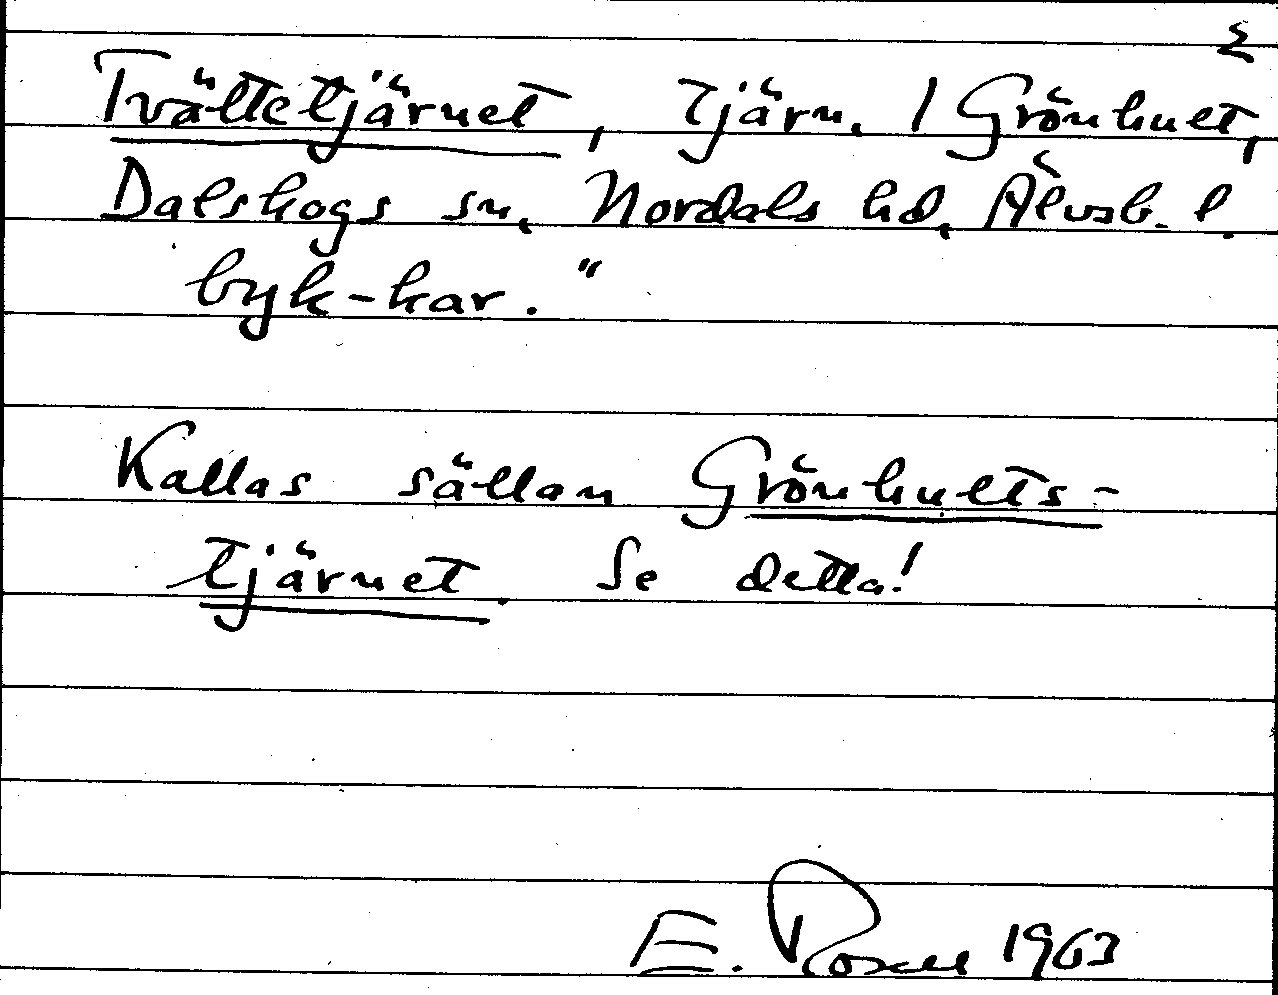 2
Tvättetjärnet, Tjärn. / Grönhult,
Dalskogs sn, Nordals hd, Älvsb. l.
byk-kar."
Kallas sällan Grönhults-
tjärnet. Se detta!
E. Rosell 1963